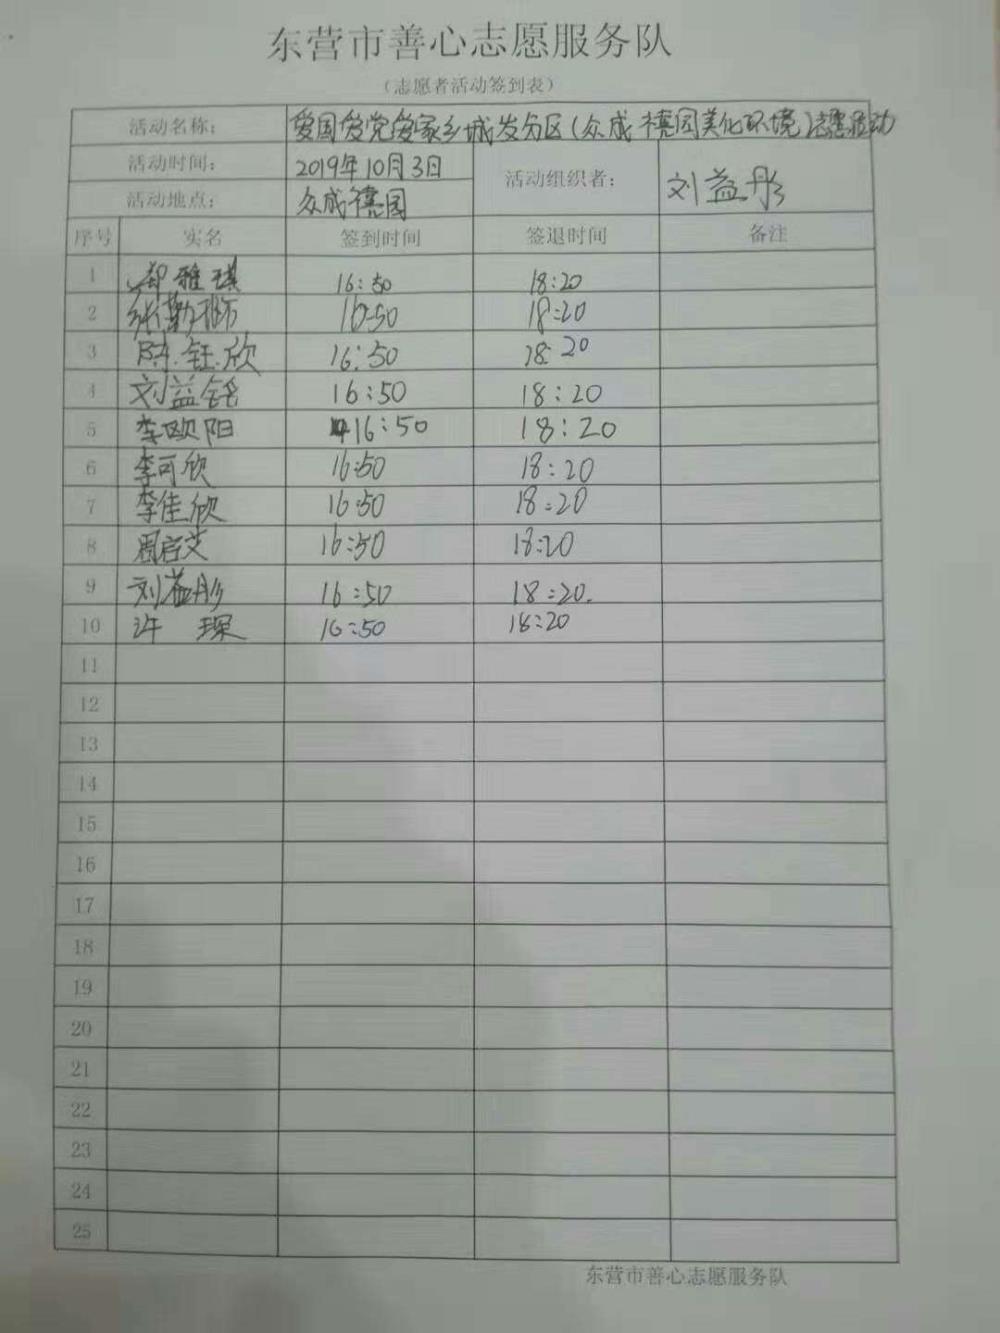 东营市善心志愿服务队
（志愿者活动签到表）
活动名称： 爱国爱党爱家乡城发分区（众成 德园美化环境）志愿活动
活动时间： 2019年10月3日 活动组织者： 刘益彤
活动地点： 众成德园
序号 实名 签到时间 签退时间 备注
1 雅琪 16:50 18:20
2 张勤 16:50 18:20
3 陈钰欣 16:50 18:20
4 刘益铭 16:50 18:20
5 李欧阳 16:50 18:20
6 李可欣 16:50 18:20
7 李佳欣 16:50 18:20
8 周 16:50 18:20
9 刘益彤 16:50 18:20.
10 许 琛 16:50 18:20
11
12
13
14
15
16
17
18
19
20
21
22
23
24
25
东营市善心志愿服务队